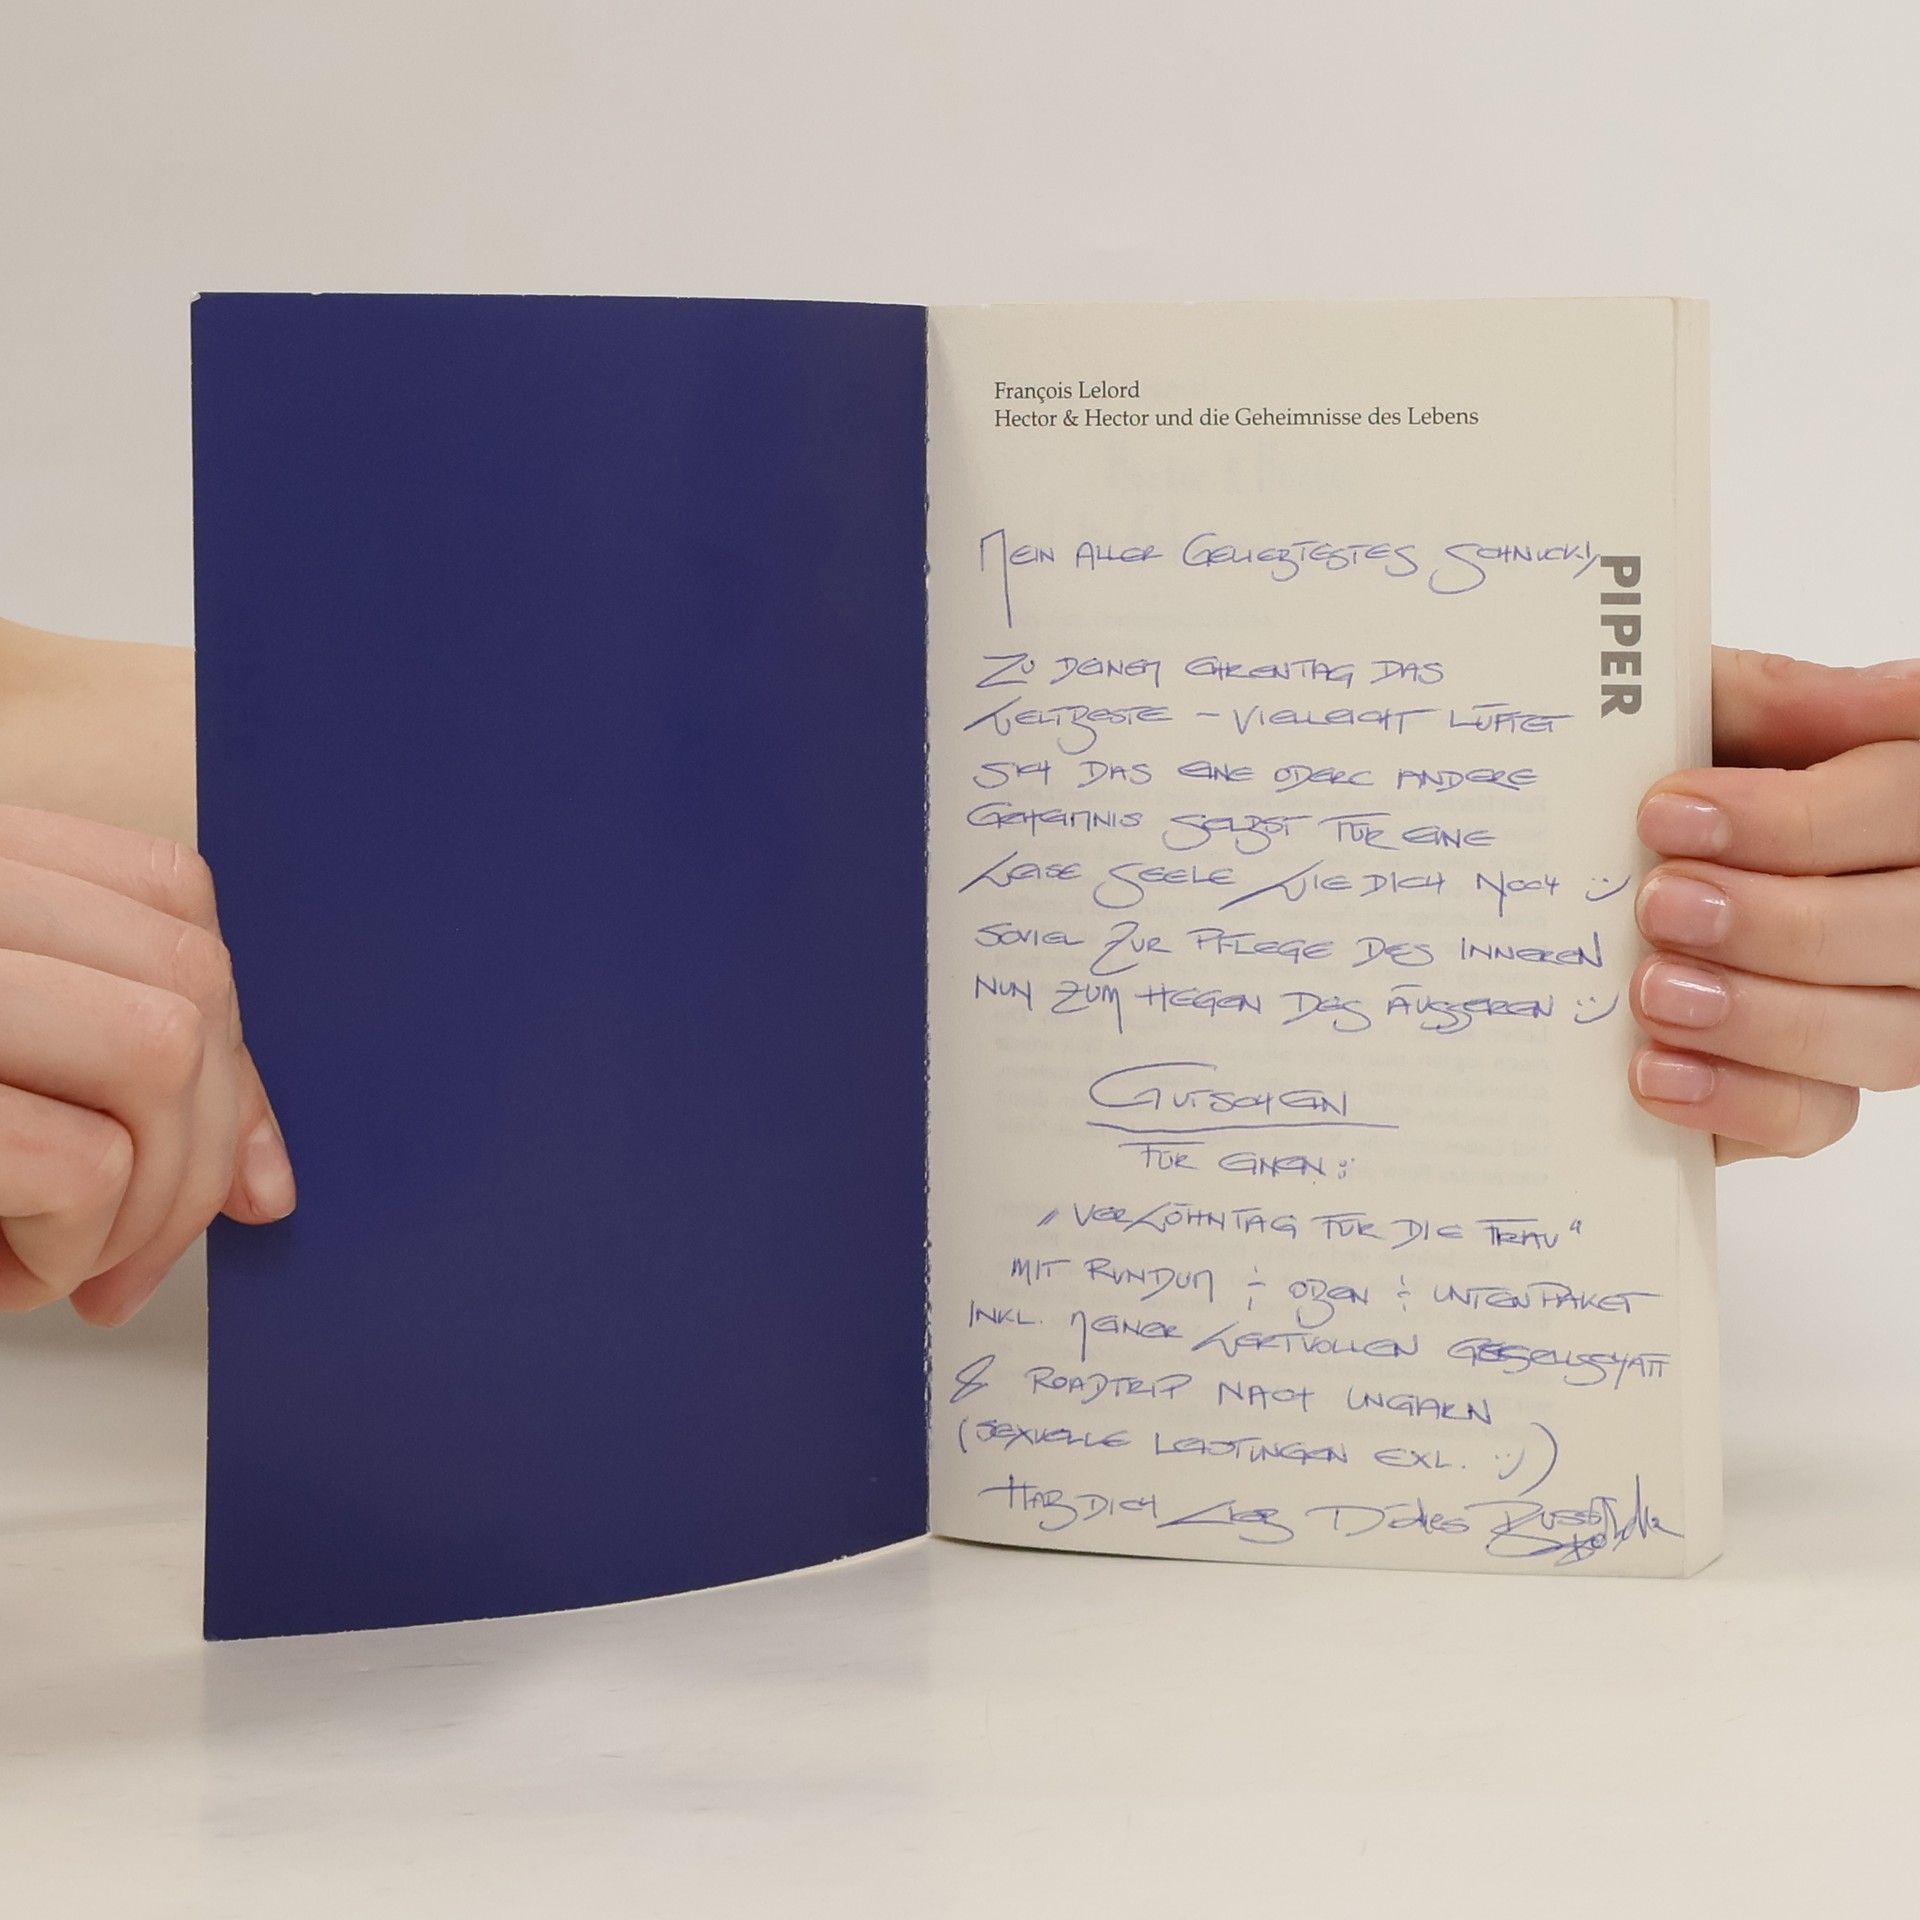 François Lelord
Hector & Hector und die Geheimnisse des Lebens
PIPER
MEIN ALLER GELIEBTESTES SCHNUCKI,
ZU DEINEM EHRENTAG DAS
WELTBESTE – VIELLEICHT LÜFTET
SICH DAS EINE ODER ANDERE
GEHEIMNIS SELBST FÜR EINE
WEISE SEELE WIE DICH NOCH :)
SOVIEL ZUR PFLEGE DES INNEREN
NUN ZUM HEGEN DES ÄUSSEREN :)
GUTSCHEIN
FÜR EINEN:
„VERWÖHNTAG FÜR DIE FRAU“
MIT RUNDUM ÷ OBEN ÷ UNTEN PAKET
INKL. MEINER WERTVOLLEN GESELLSCHAFT
& ROADTRIP NACH UNGARN
(SEXUELLE LEISTUNGEN EXL. :))
HAB DICH LIEB